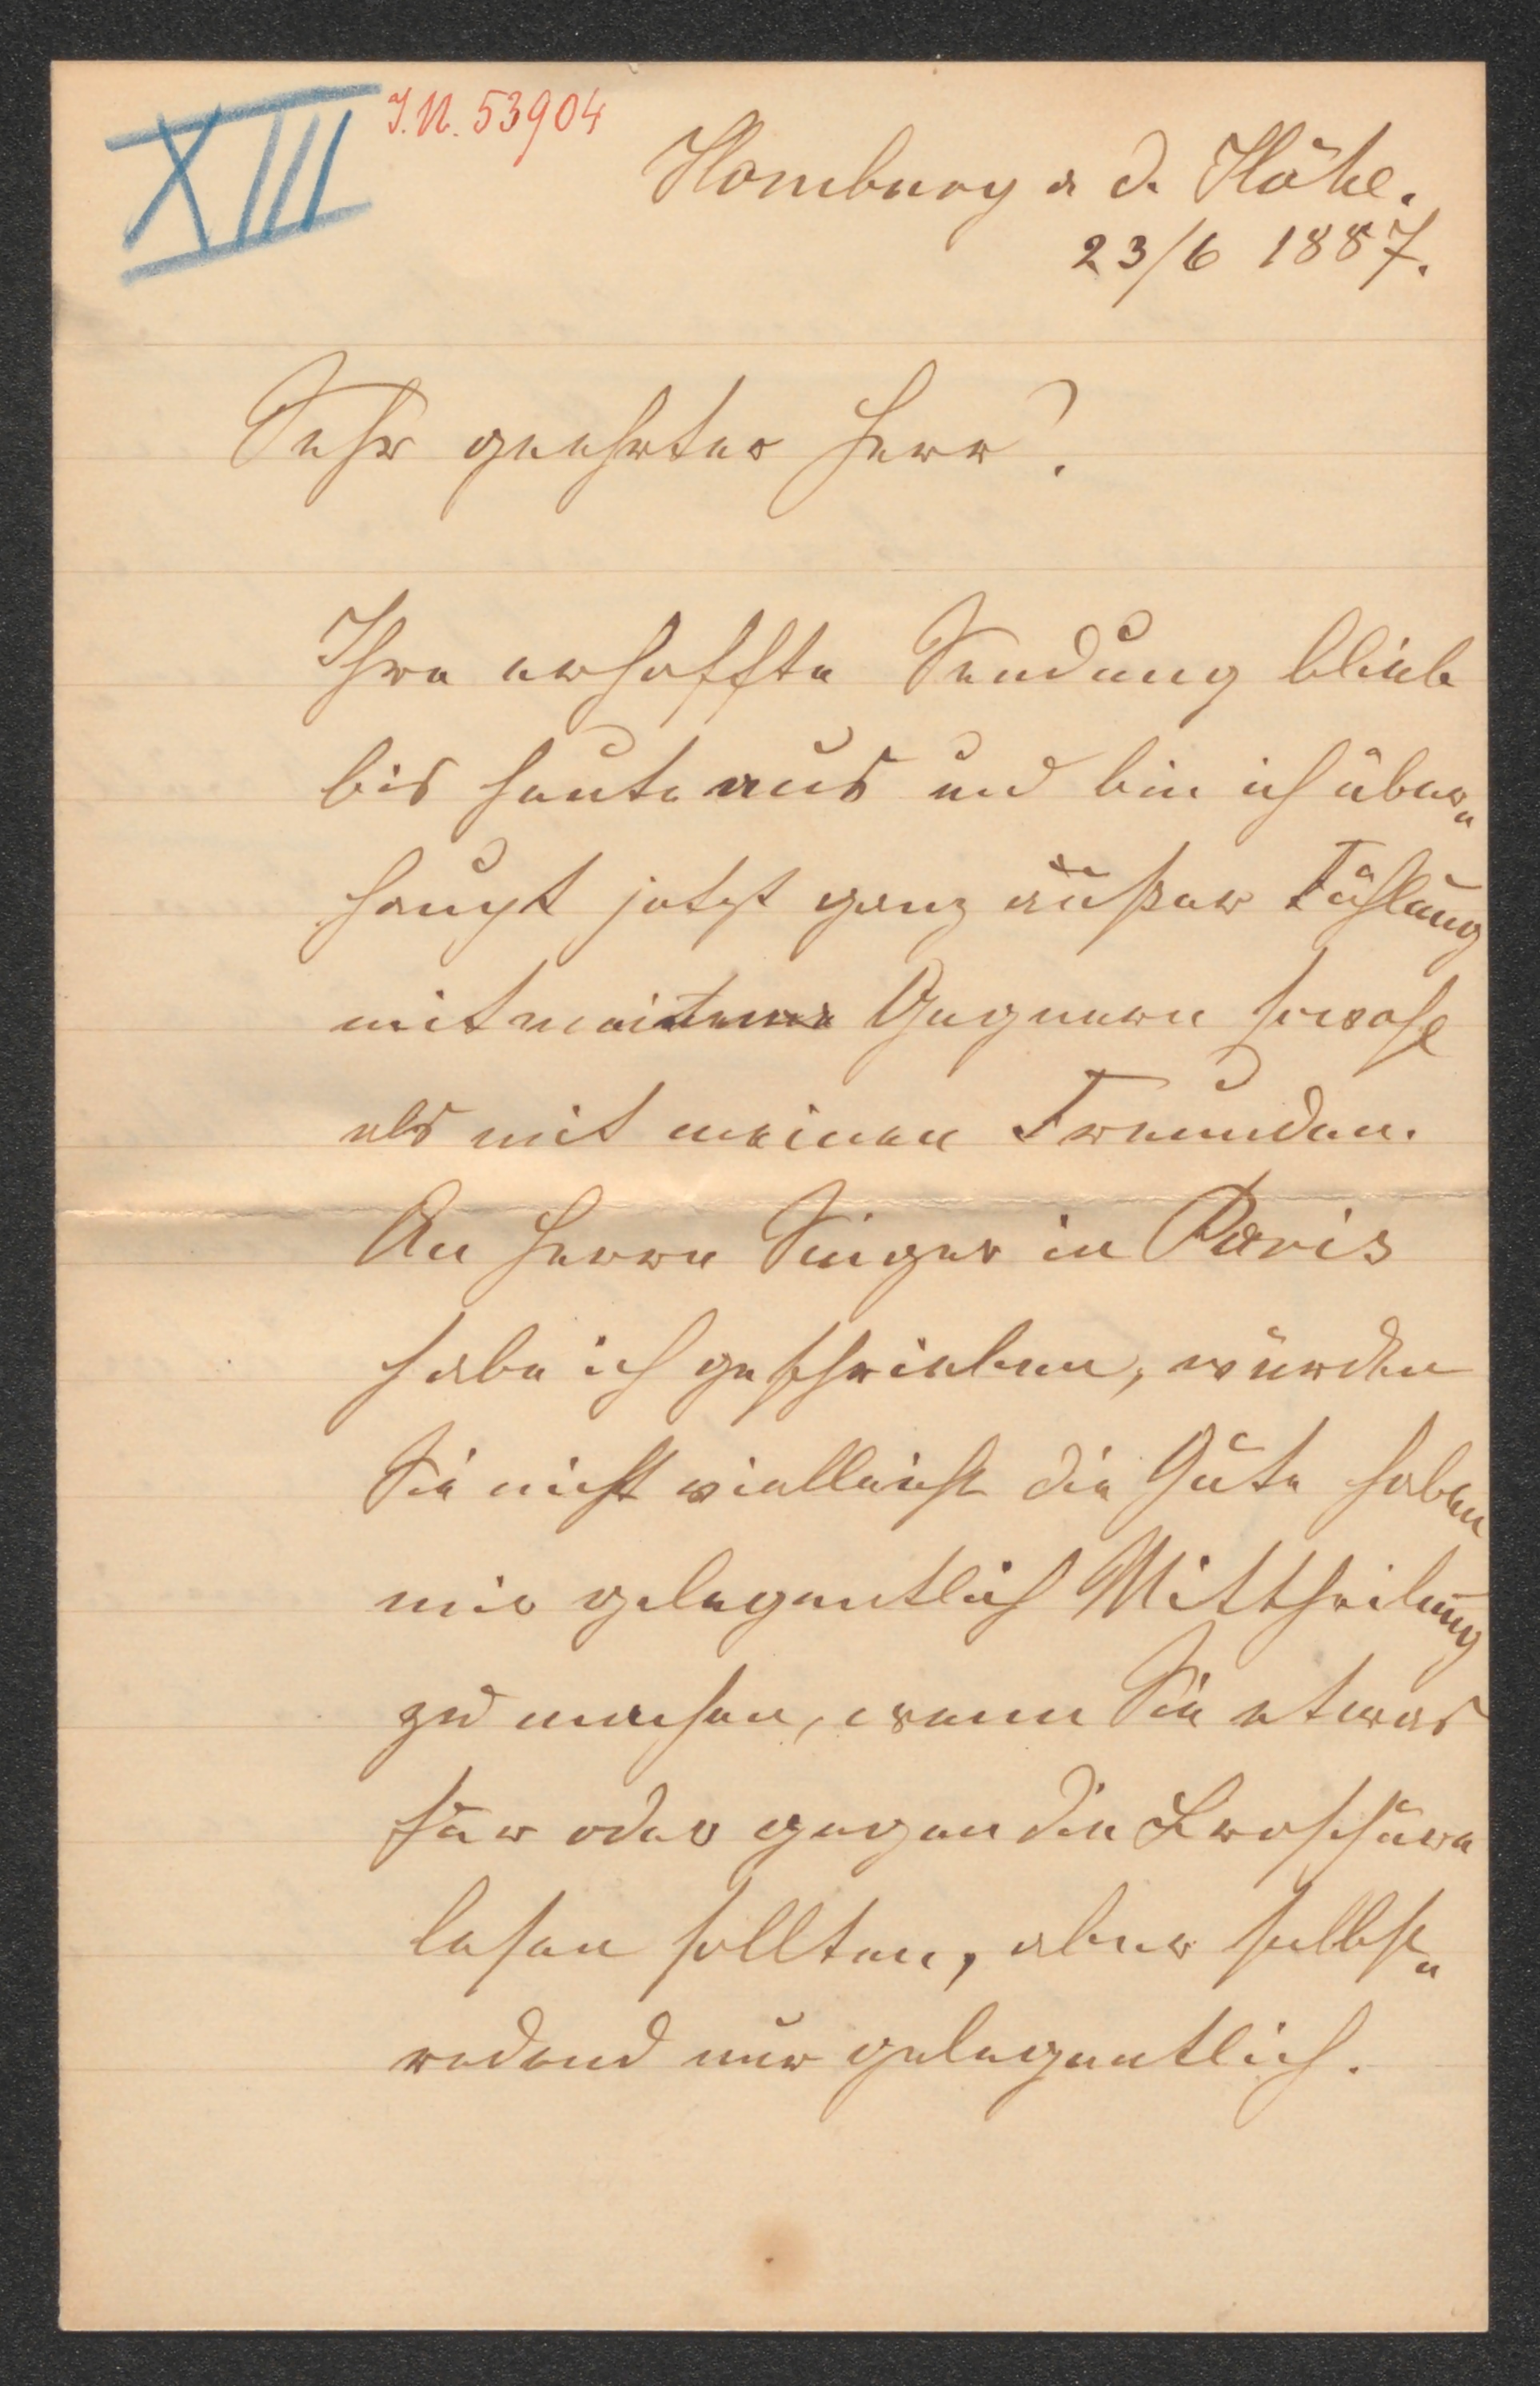 XIII
J.N. 53904
Homburg a d. Höhe.
23/6 1887.
Sehr geehrter Herr!
Ihre erhoffte Sendung blieb
bis heute aus und bin ich über=
haupt jetzt ganz außer Fühlung
mit meinen Gegnern sowohl
als mit meinen Freunden.
An Herrn Singer in Paris
habe ich geschrieben, würden
Sie nicht vielleicht die Güte haben
mir gelegentlich Mittheilung
zu machen, wenn Sie etwas
für oder gegen die Broschüre
lesen sollten, aber selbst=
redend nur gelegentlich.